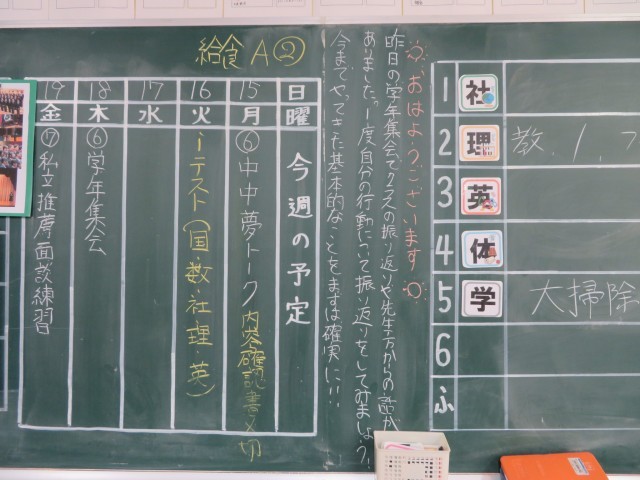 給食 A②
日曜 今週の予定
15 月 ⑥中中夢トーク 内容確認書〆切
16 火 iテスト(国・数・社・理・英)
17 水
18 木 ⑥学年集会
19 金 ⑦私立推薦面談練習
おはようございます
昨日の学年集会で2学の振り返りや先生方からの話が
ありました。1度自分の行動について振り返りをしてみましょう。
今までやってきた基本的なことをまずは確実に!!
1 社
2 理 教.1.
3 英
4 体
5 学 大掃除
6
ふ